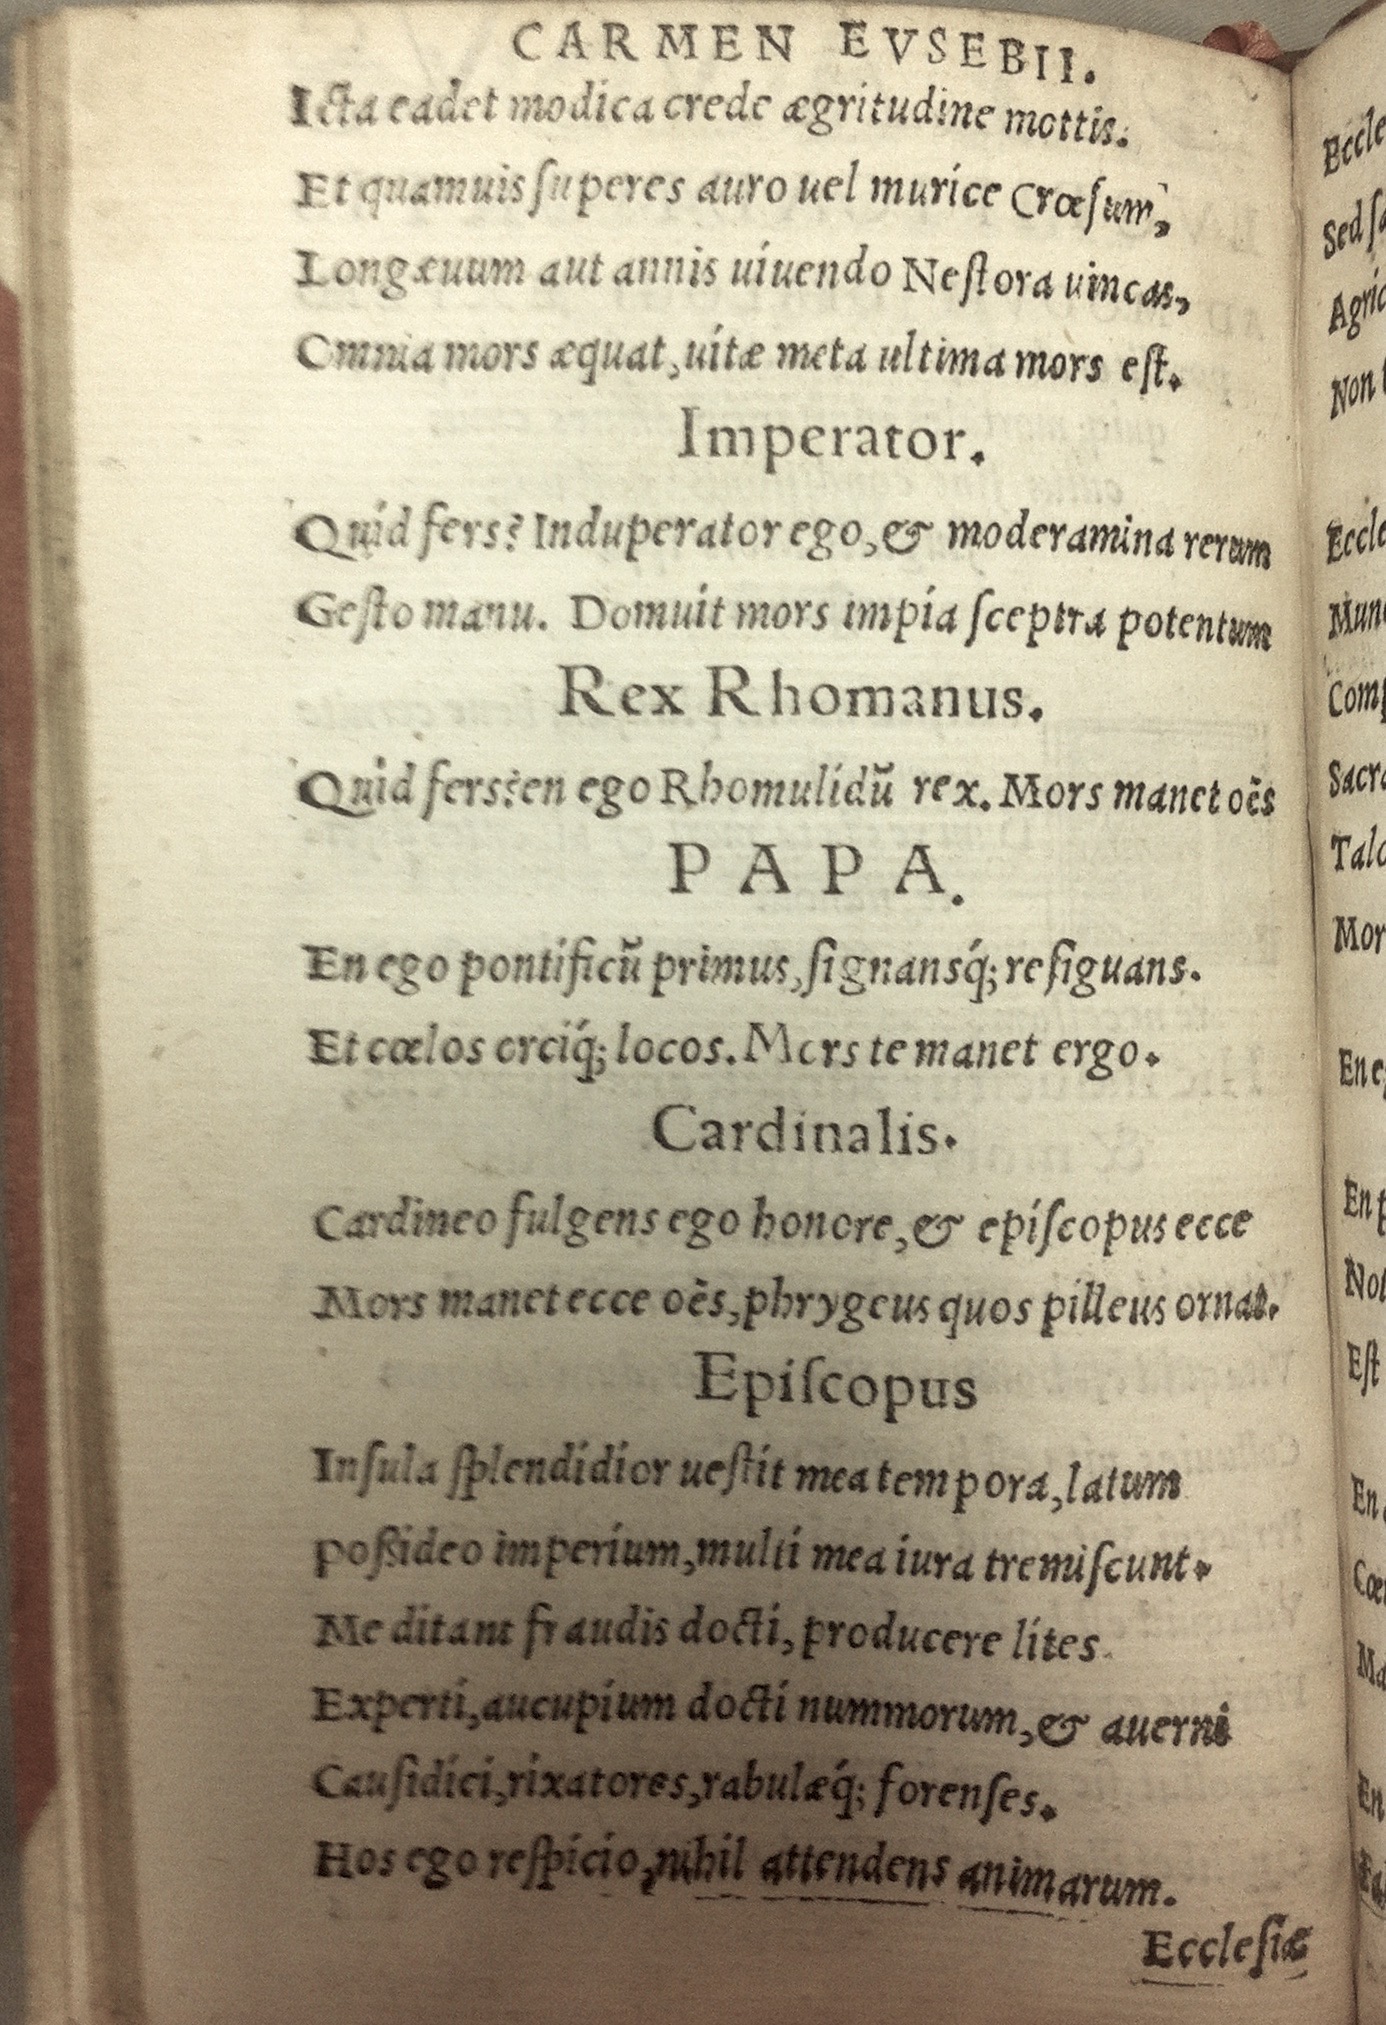 CARMEN EVSEBII.
Icta cadet modica crede ægritudine mottis.
Et quamuis ſuperes auro uel murice Crœſum,
Longæuum aut annis uiuendo Neſtora uincas,
Omnia mors æquat, uitæ meta ultima mors eſt.
Imperator.
Quid fers? Induperator ego, & moderamina rerum
Geſto manu. Domuit mors impia ſceptra potentum
Rex Rhomanus.
Quid fers? en ego Rhomulidũ rex. Mors manet oẽs
PAPA.
En ego pontificũ primus, ſignansq́; reſiguans.
Et cœlos orciq́; locos. Mors te manet ergo.
Cardinalis.
Cardineo fulgens ego honore, & epiſcopus ecce
Mors manet ecce oẽs, phrygeus quos pilleus ornat.
Epiſcopus
Inſula ſplendidior ueſtit mea tempora, latum
poſſideo imperium, multi mea iura tremiſcunt.
Me ditant fraudis docti, producere lites.
Experti, aucupium docti nummorum, & auerni
Cauſidici, rixatores, rabulæq́; forenſes.
Hos ego reſpicio, nihil attendens animarum.
Eccleſiæ
Eccle
Sed ſa
Agric
Non
Eccle
Mun
Com
Sacr
Tal
Mor
En e
En p
Not
Eſt
En
Cœ
Ma
En